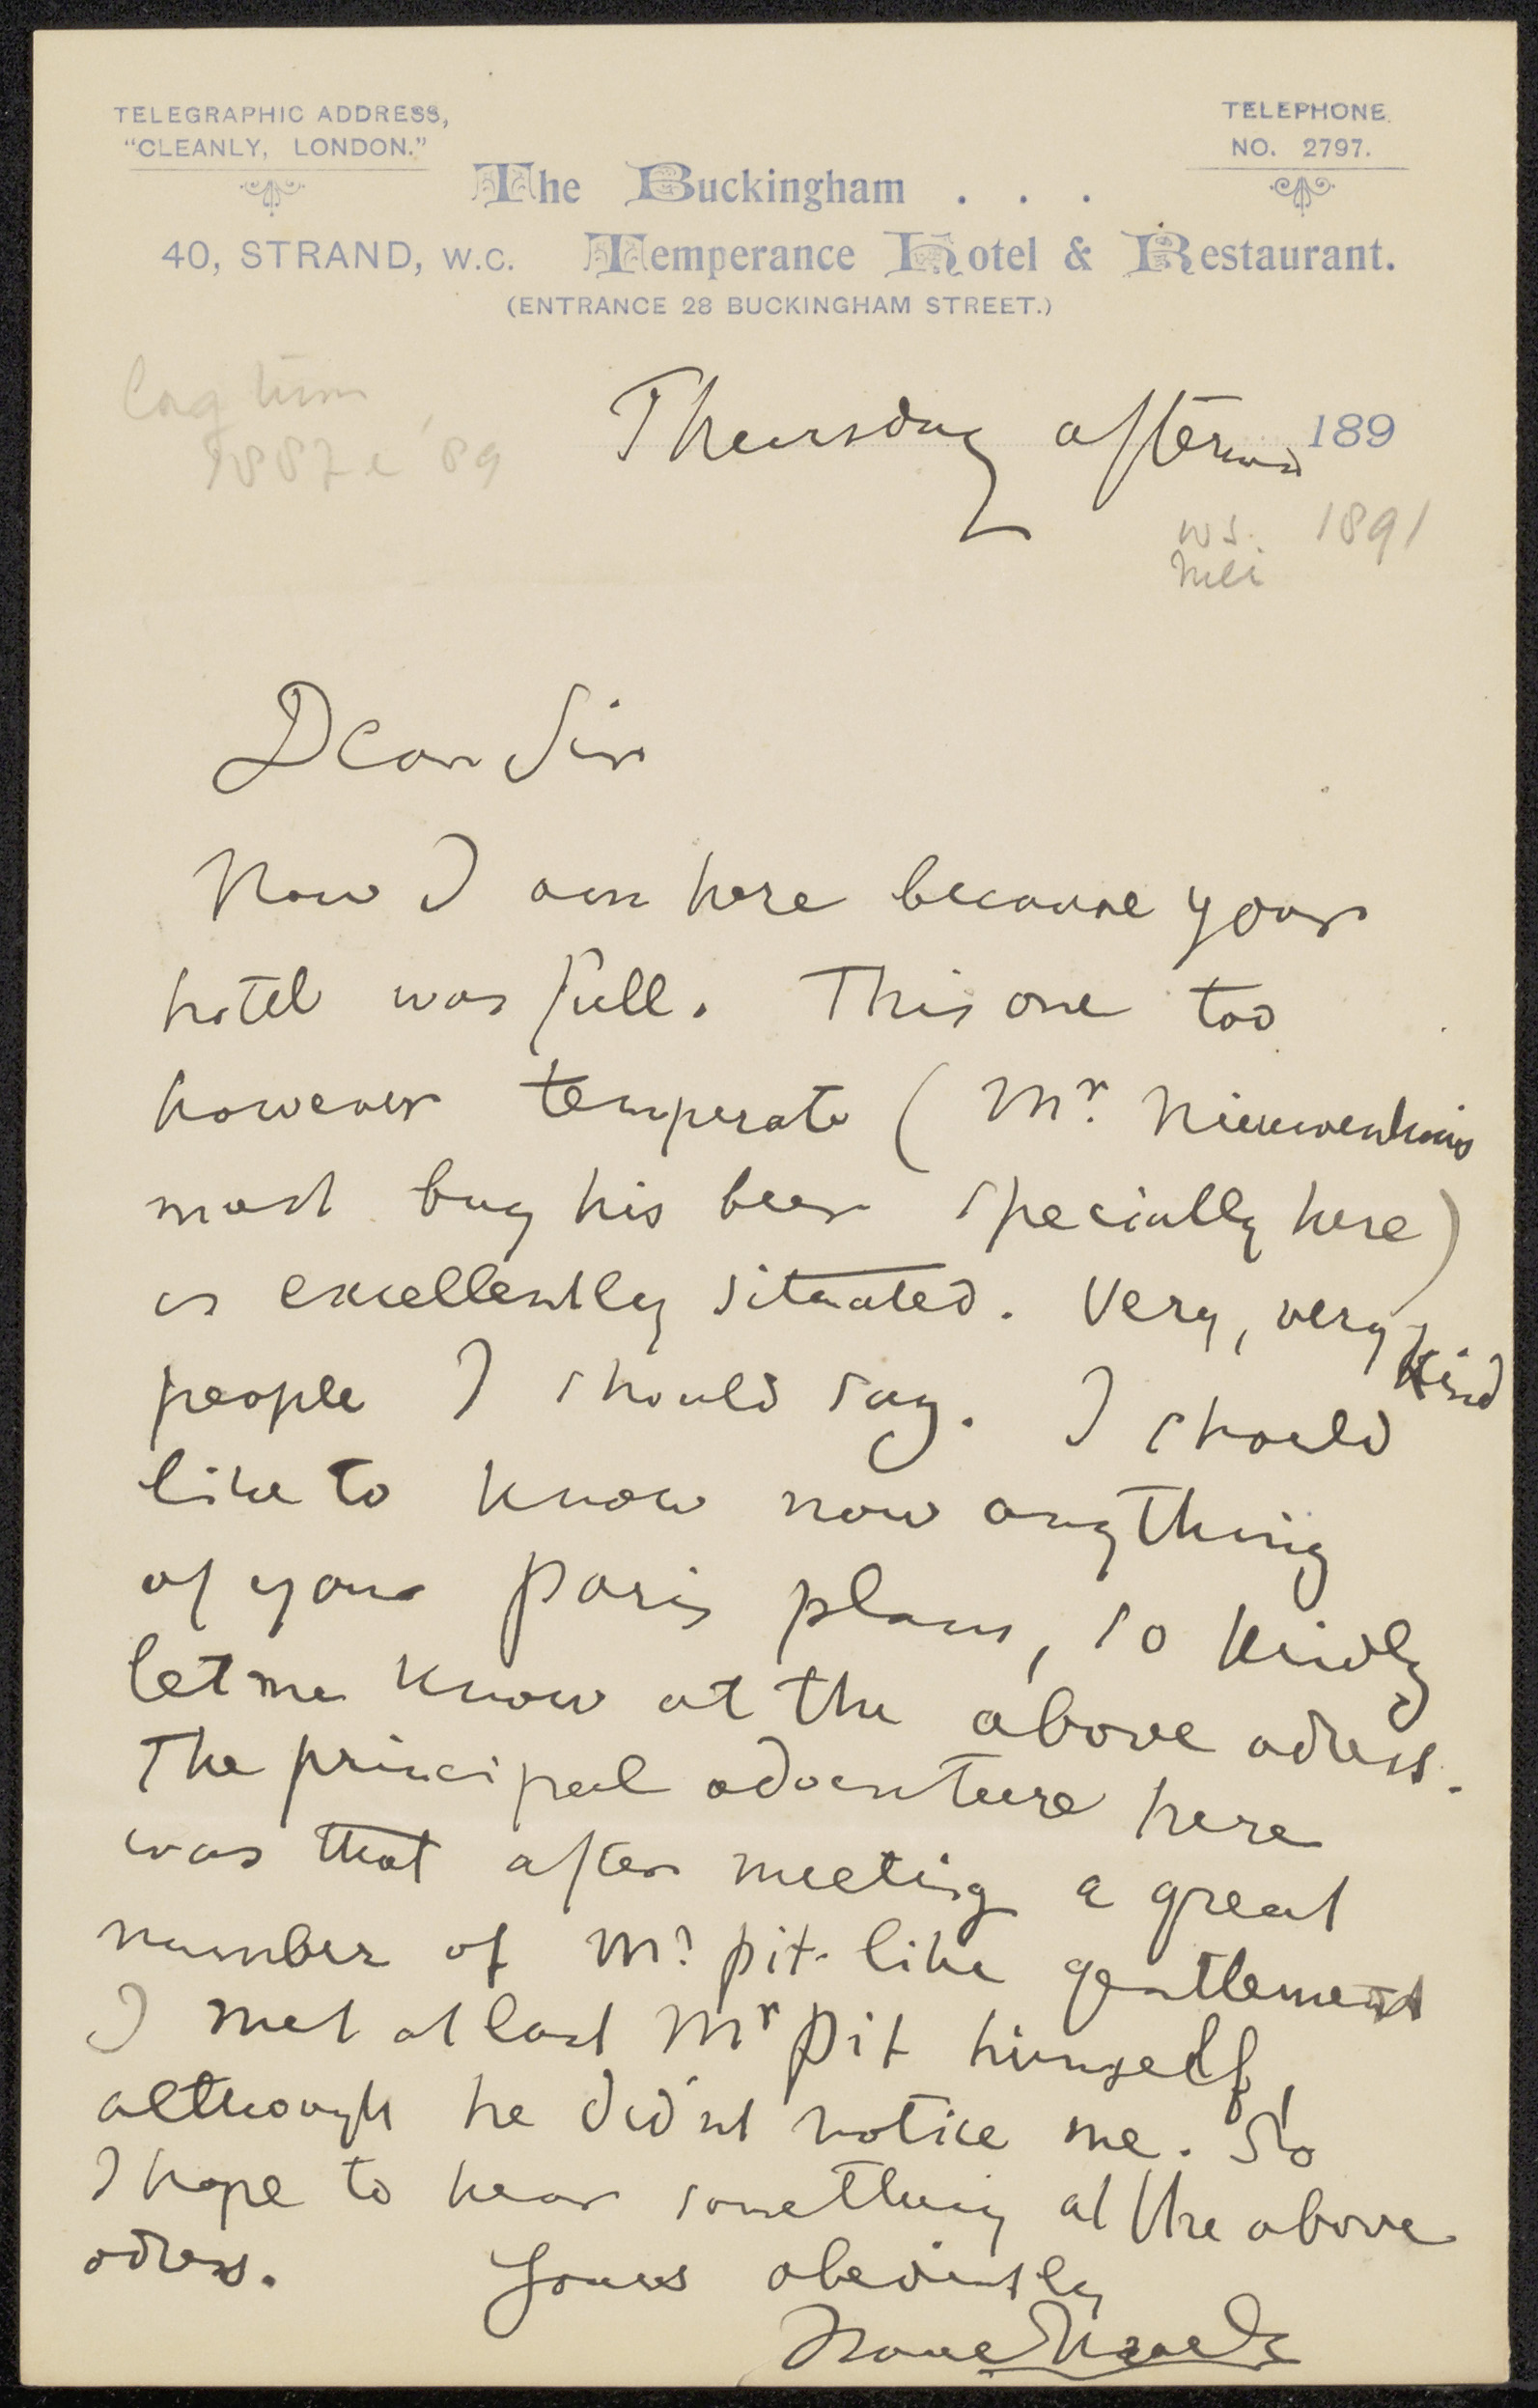 TELEGRAPHIC ADDRESS,
"CLEANLY, LONDON."
TELEPHONE
NO. 2797.
The Buckingham . . .
40, STRAND, W.C. Temperance Hotel & Restaurant.
(ENTRANCE 28 BUCKINGHAM STREET.)
Thursday afternoon 189
1887 '89
1891
Dear Sir
Now I am here because your
hotel was full. This one too
however temperate (Mr. Nieuwenhuis
must buy his beer specially here)
is excellently situated. Very, very kind
people I should say. I should
like to know now anything
of your Paris plans, so kindly
let me know at the above adress.
The principal adventure here
was that after meeting a great
number of Mr. pit-like gentlemen
I met at last Mr Pit himself,
although he did'nt notice me. So
I hope to hear something at the above
adress. Yours obediently
Isaac Israels